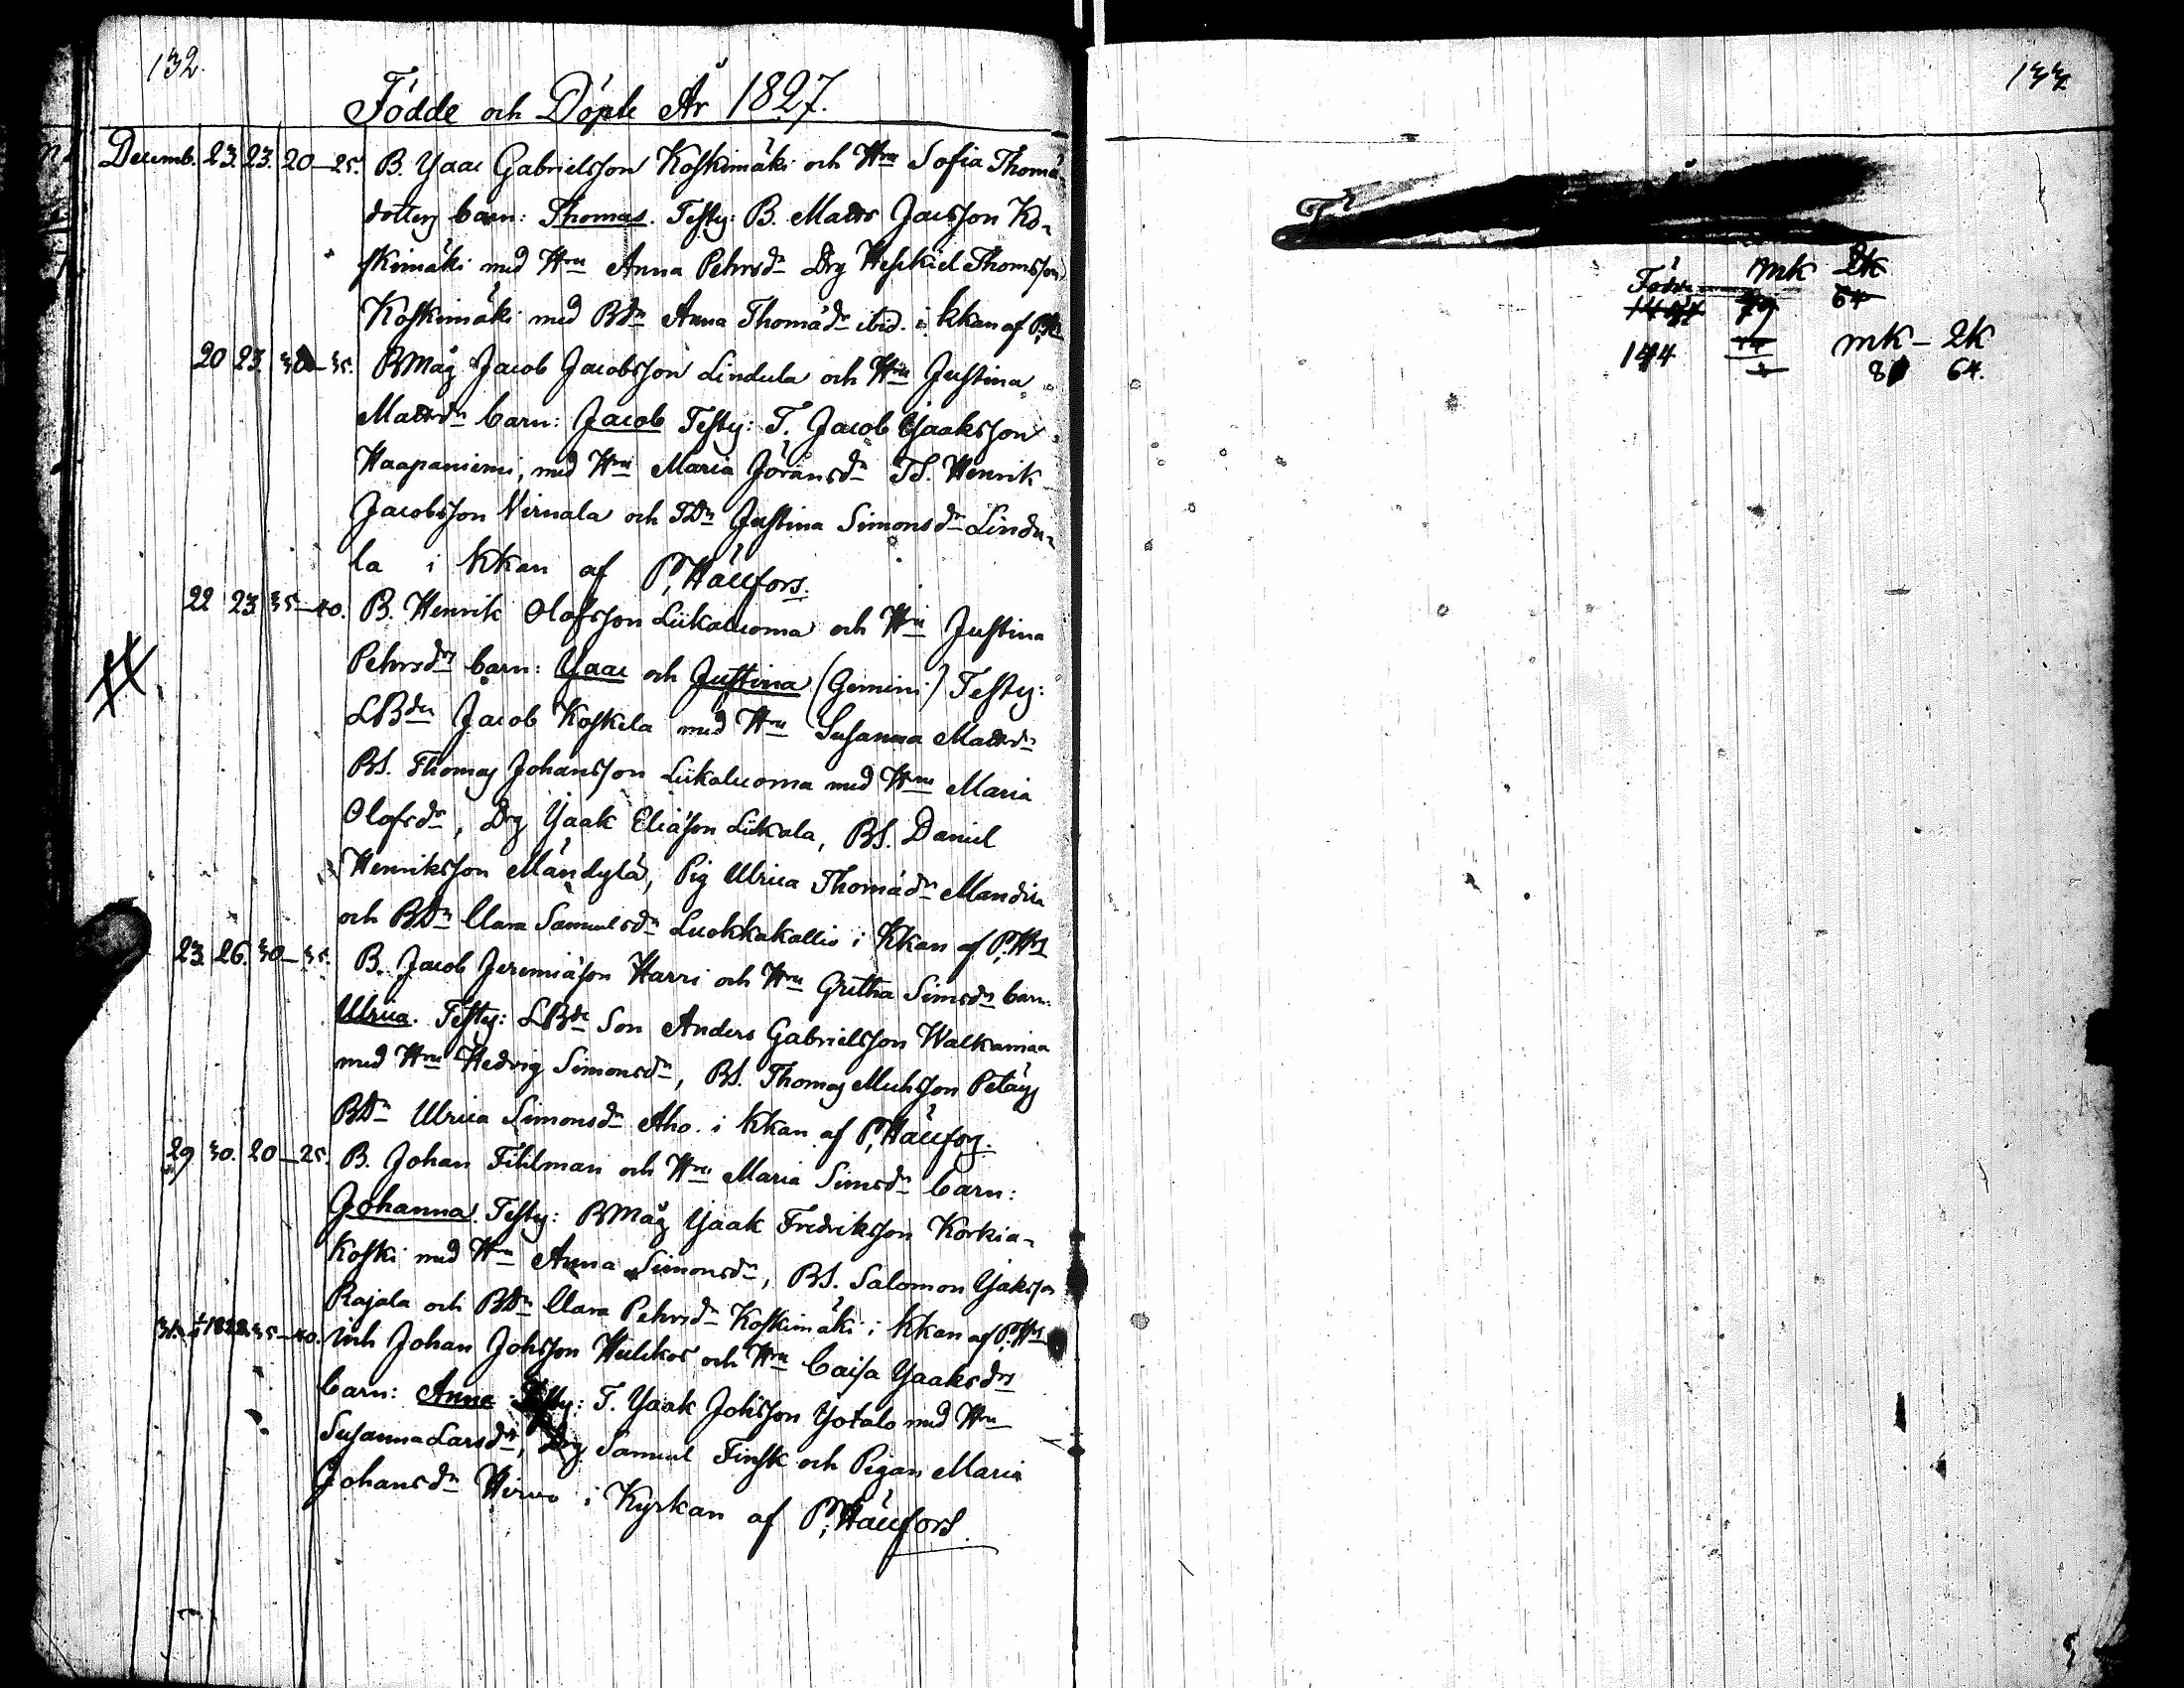 132.
Födde och Döpte År 1827.
Decemb. 23. 23. 20–25. B. Ysaac Gabrielsson Koskimäki och Hru Sofia Thomæ
dotters barn: Thomas. Testes: B. Matts Jacsson Ko-
skimäki med Hru Anna Pehrsdr Drg Heskiel Thomsson
Koskimäki med BDr Anna Thomædr ibid. i kkan af
20 23. 30–35. BMåg Jacob Jacobsson Lindula och Hru Justina
Mattsdr barn: Jacob Testes: T. Jacob Ysaaksson
Haapaniemi, med Hru Maria Göransdr TS. Henrik
Jacobsson Nirnala och TDr Justina Simonsdr Lindu-
la i kkan af P. Häufors.
22 23 35–40. B. Henrik Olofsson Liikaluoma och Hru Justina
Pehrsdrs barn: Ysaac och Justina (Gemini) Testes:
LBdn Jacob Koskela med Hru Susanna Mattsdr
BS. Thomas Johansson Liikaluoma med Hru Maria
Olofsdr, Drg Ysaak Eliasson Liikala, BS. Daniel
Henriksson Mändylä, Pig Ulrica Thomædr
och BDr Clara Samuelsdr Luokkakallio i Kkan af P. Hrs
23. 26. 30–35. B. Jacob Jeremiæson Harri och Hru Gretha Simsdrs barn:
Ulrica. Testes: LBde Son Anders Gabrielsson Walkamaa
med Hru Hedvig Simonsdr, BS. Thomas Michsson Petäys
BDr Ulrica Simonsdr Aho. i kkan af P. Häufors.
29 30. 20–25. B. Johan Fihlman och Hru Maria Simsdr barn:
Johanna. Testes: BMåg Ysaak Fredriksson Korkia-
koski med Hru Anna Simonsdr, BS. Salomon Ysaksson
Rajala och BDr Clara Pehrsdr Koskimäki i kkan af P. Hrs
31. 1/1 1828. 35–40. Inh Johan Johsson och Hru Caisa Ysaaksdrs
barn: Anna Testes: T. Ysaak Johsson Yotalo med Hru
Susanna Larsdr, Drg Samuel Finsk och Pigan Maria
Johansdr Hirvo i Kyrkan af P. Häufors.
133
mk 2k
79 64
mk – 2k
144 8 64.